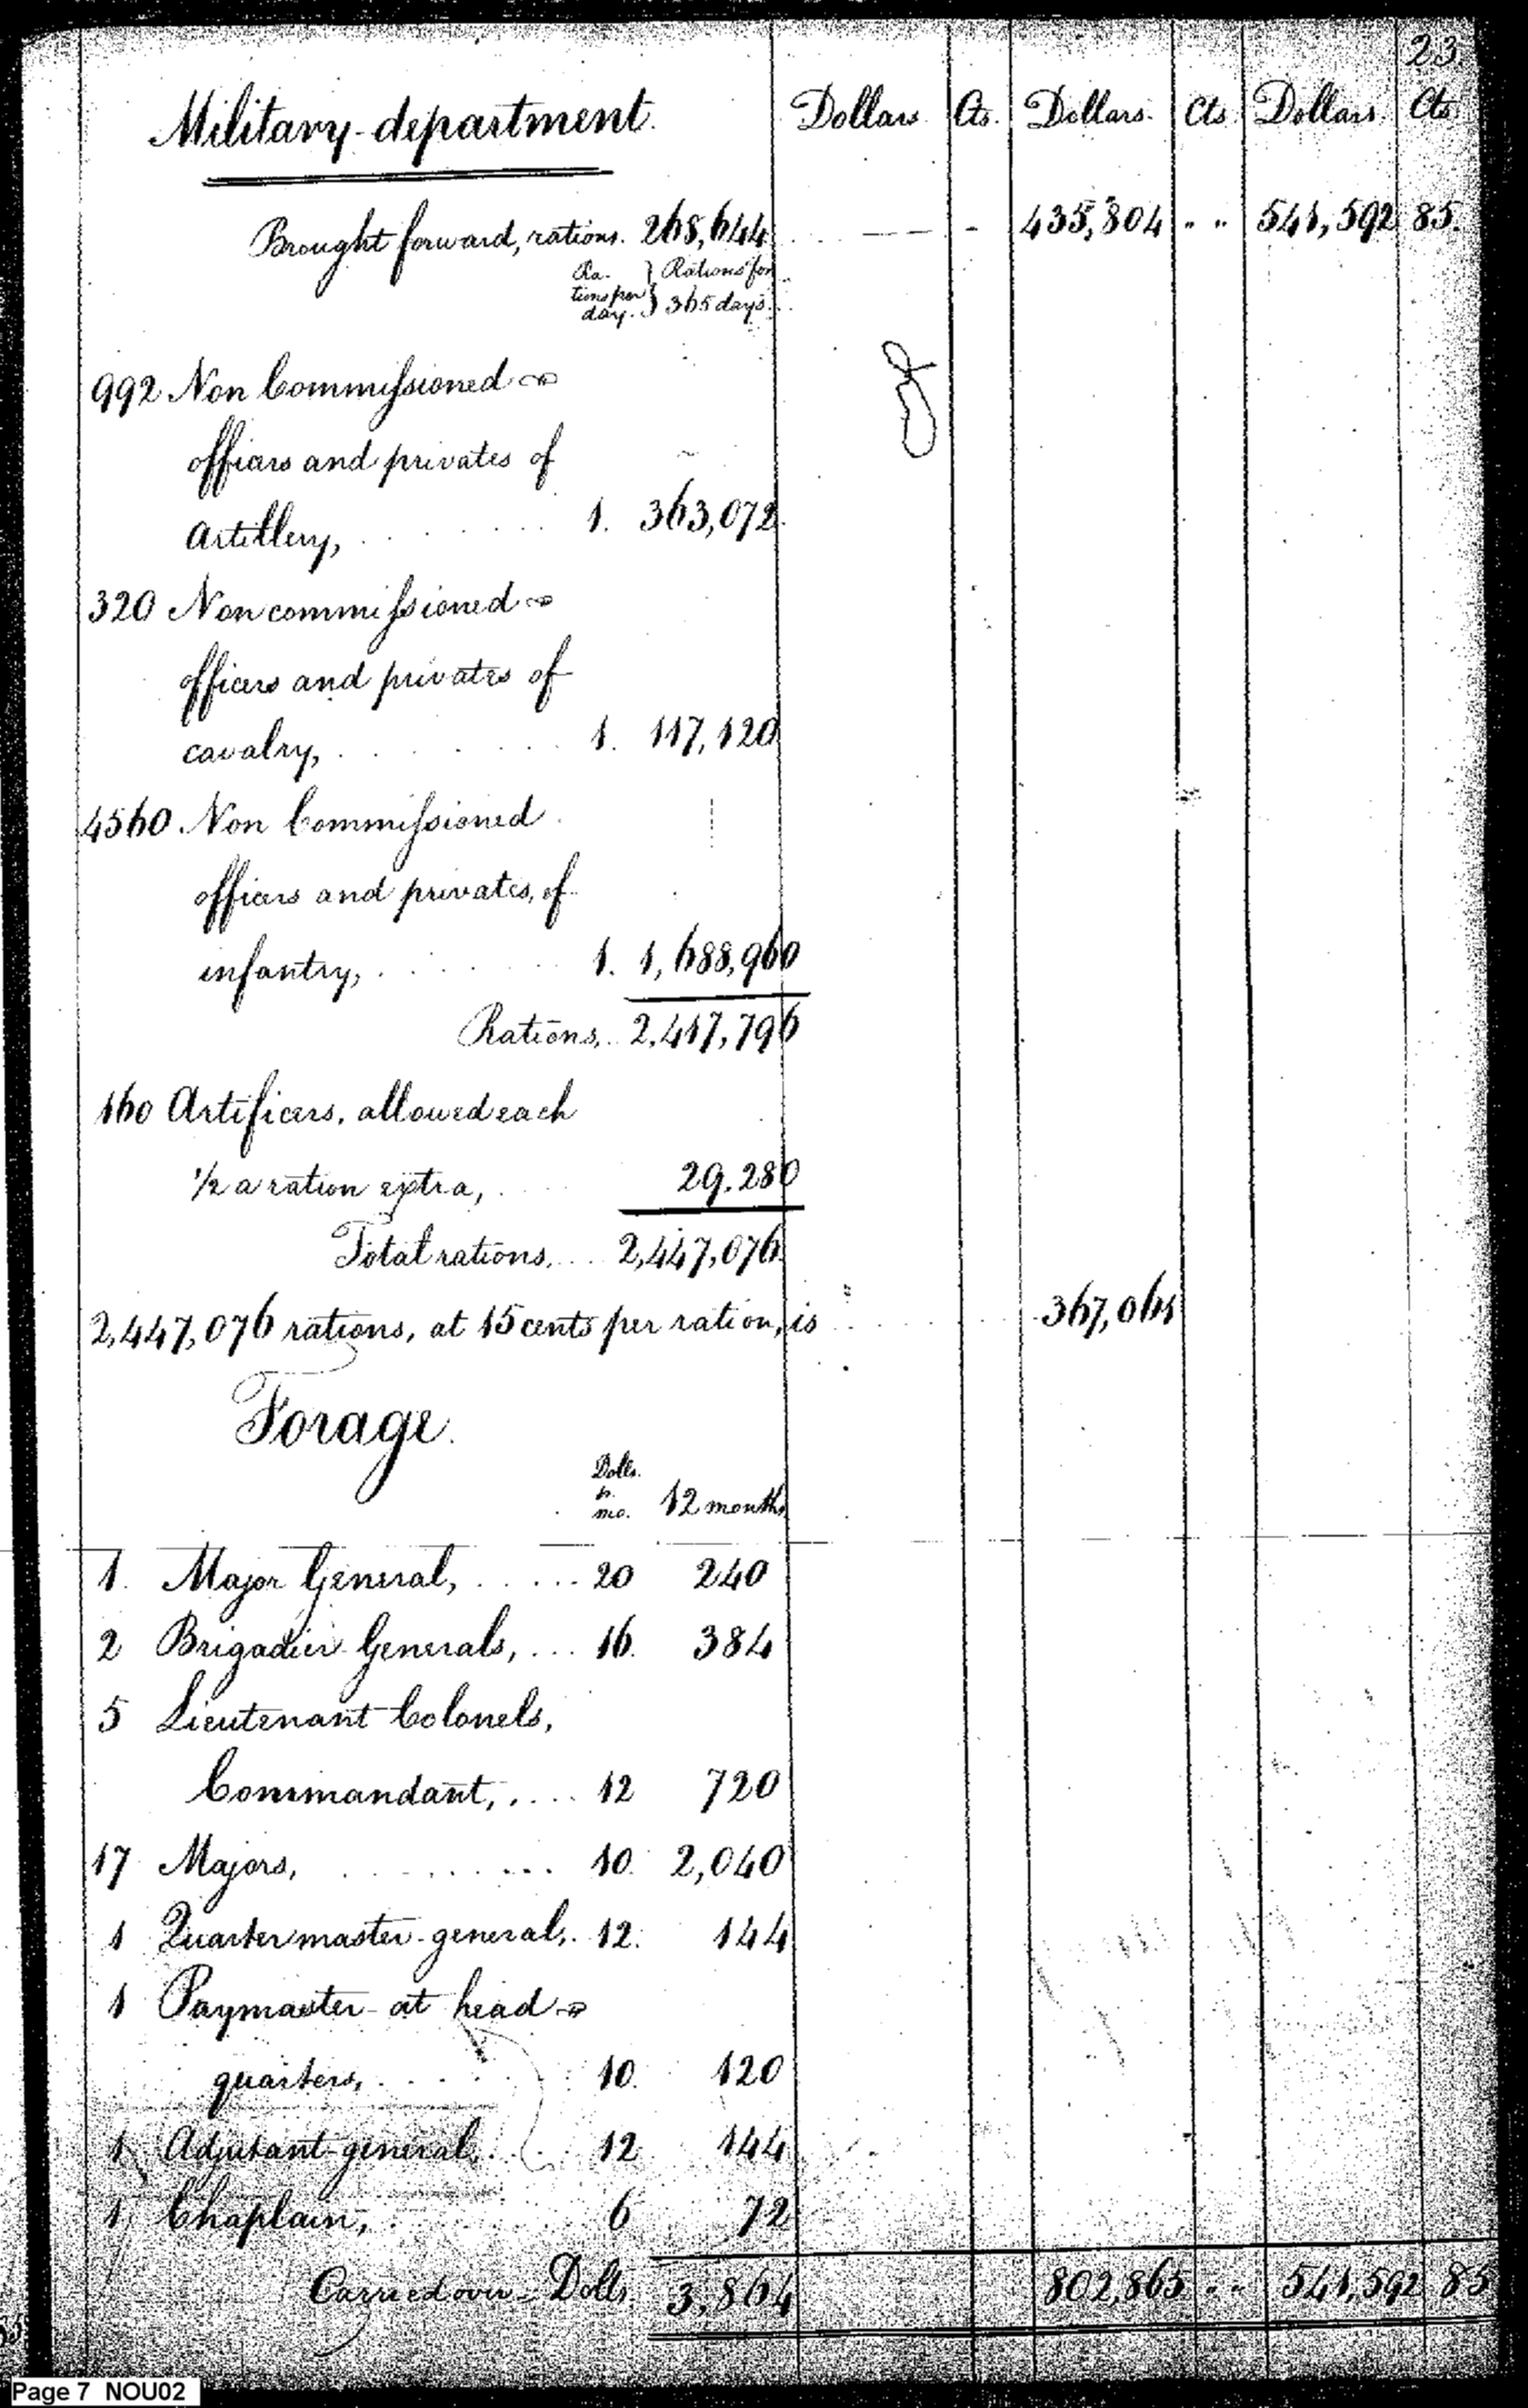 23.
Military department. Dollars Cts. Dollars. Cts. Dollars. Cts.
Brought forward, rations. 268,644 435,804 541,592 85.
Ra- } Rations for
tions per } 365 days.
day.
992 Non Commissioned
officers and privates of
Artillery, 1. 363,072.
320 Non commissioned
officers and privates of
cavalry, 1. 117,120
4560 Non Commissioned
officers and privates, of
infantry, 1. 1,688,960
Rations, 2,417,796
160 Artificers, allowed each
1/2 a ration extra, 29.280
Total rations, 2,447,076
2,447,076 rations, at 15 cents per ration, is 367,061
Forage.
Dolls.
p. 12 months
mo.
1. Major General, 20 240
2 Brigadier Generals, 16. 384
5 Lieutenant Colonels,
Commandant, 12 720
17 Majors, 10. 2,040
1 Quarter master general, 12. 144
1 Paymaster at head
quarters, 10. 120
1 Adjutant general, 12 144
1 Chaplain, 6 72
Carried over Dolls. 3,864 802,865 541,592 85
Page 7 NOU02